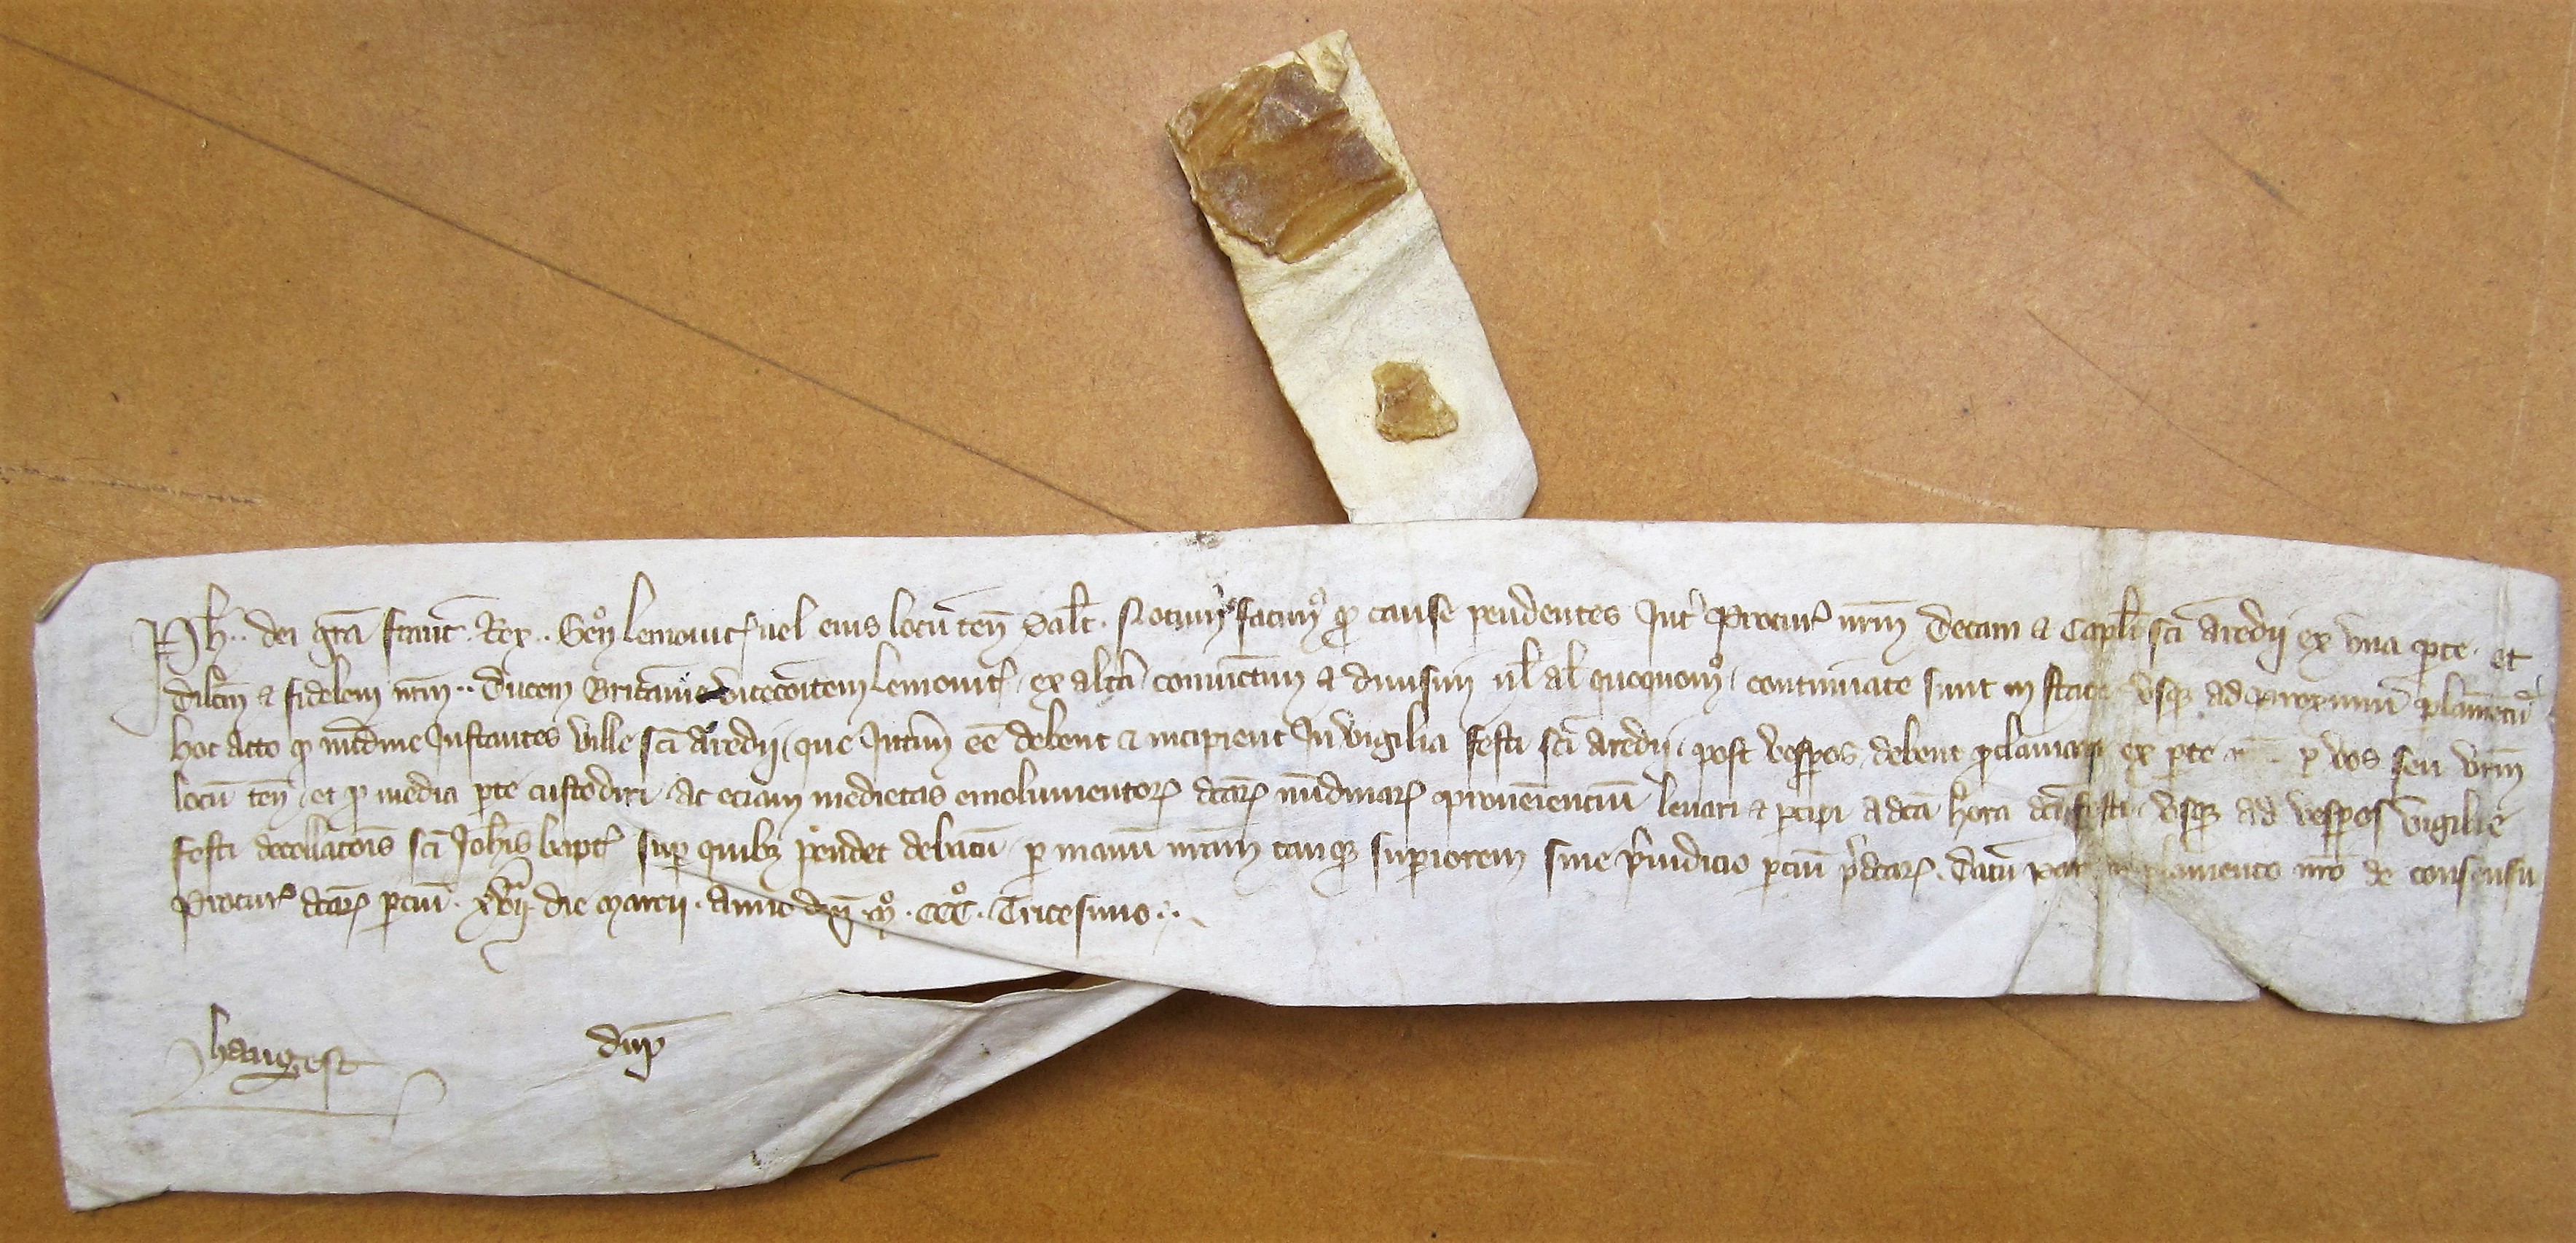 Ph. dei gra͞ franc͞. Rex.. Sen͞ lemouic͞ uel eius locu͞ ten͞ Salt͞. Notum͞ facim͞ qd͞ cause pendentes Int͞ Procur͞ nr͞m Decan͞ & Capl͞m sc͞i Aredij ex una p͞te. et
dilc͞m & fidelem nr͞m.. Ducem Britanie vicecoitem lemouic͞. ex alt͞a coniunctim & diuisim ul͞ al͞ quoquomo͞. continuate sunt in statu usq͞ ad proximum p͞lamentu͞
hoc acto qd͞ nu͞dine Instantes ville sc͞i Aredij. que Int͞im e͞e debent & incipient In vigilia festi sc͞i Aredij. post vesp͞as debent p͞clamari ex p͞te p͞ vos seu vr͞m
locu͞ ten͞. et p͞ media p͞te custodiri. Ac eciam medietas emolumentor͞ dc͞ar͞ nu͞dinar͞ proueniencium leuari & p͞cipi a dc͞a hora dc͞i festi. usq͞ ad vesp͞as vigilie
festi decollacio͞is sc͞i Joh͞is bapt͞ sup͞ quib͞ pendet debatu͞. p͞ manu͞ nr͞am tanq͞ sup͞iorem sine p͞iudicio p͞ciu͞ p͞dc͞ar͞. Datu͞ par͞ in p͞lamento nr͞o de consensu
Procur͞ dc͞ar͞ p͞ciu͞. xvij͞. die marcij. anno dn͞i. mo͞. CCC͞. Tricesimo..
hangest dup͞